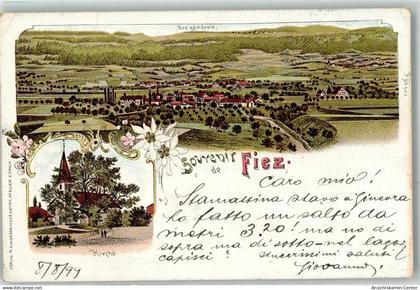 Vue générale.
Souvenir
de
Fiez.
Kirche
8/8/99
Caro mio!
Stamassina stavo a Ginevra
ho fatto un salto da
metri 3.20! ma no di
sopra ma di sotto-nel lago
capisci? sincerissimi saluti
Giovanni
Ansichtskarten-Center